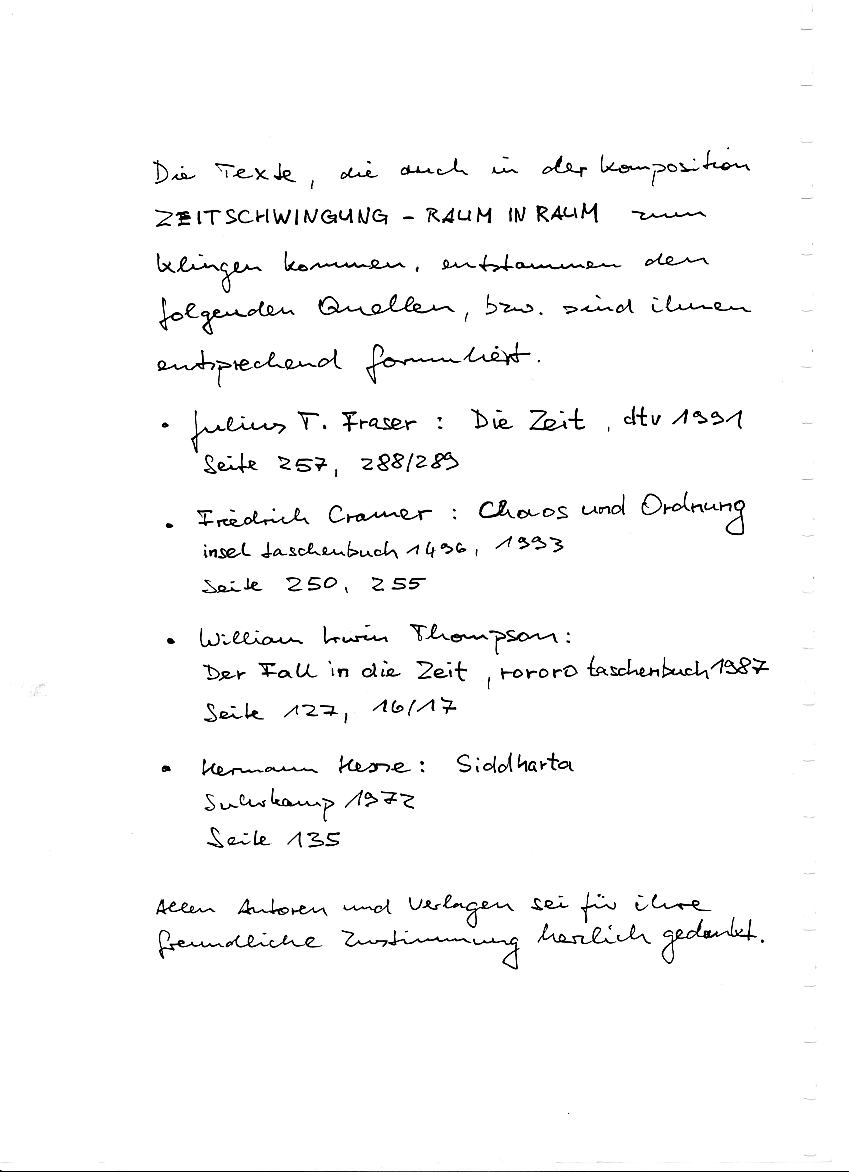 Die Texte, die auch in der Komposition
ZEITSCHWINGUNG - RAUM IN RAUM zum
Klingen kommen, entstammen den
folgenden Quellen, bzw. sind ihnen
entsprechend formuliert.
• Julius T. Fraser : Die Zeit , dtv 1991
Seite 257, 288/289
• Friedrich Cramer : Chaos und Ordnung
insel taschenbuch 1496, 1993
Seite 250, 255
• William Irwin Thompson:
Der Fall in die Zeit , rororo taschenbuch 1987
Seite 127, 16/17
• Hermann Hesse : Siddharta
Suhrkamp 1972
Seite 135
Allen Autoren und Verlagen sei für ihre
freundliche Zustimmung herzlich gedankt.